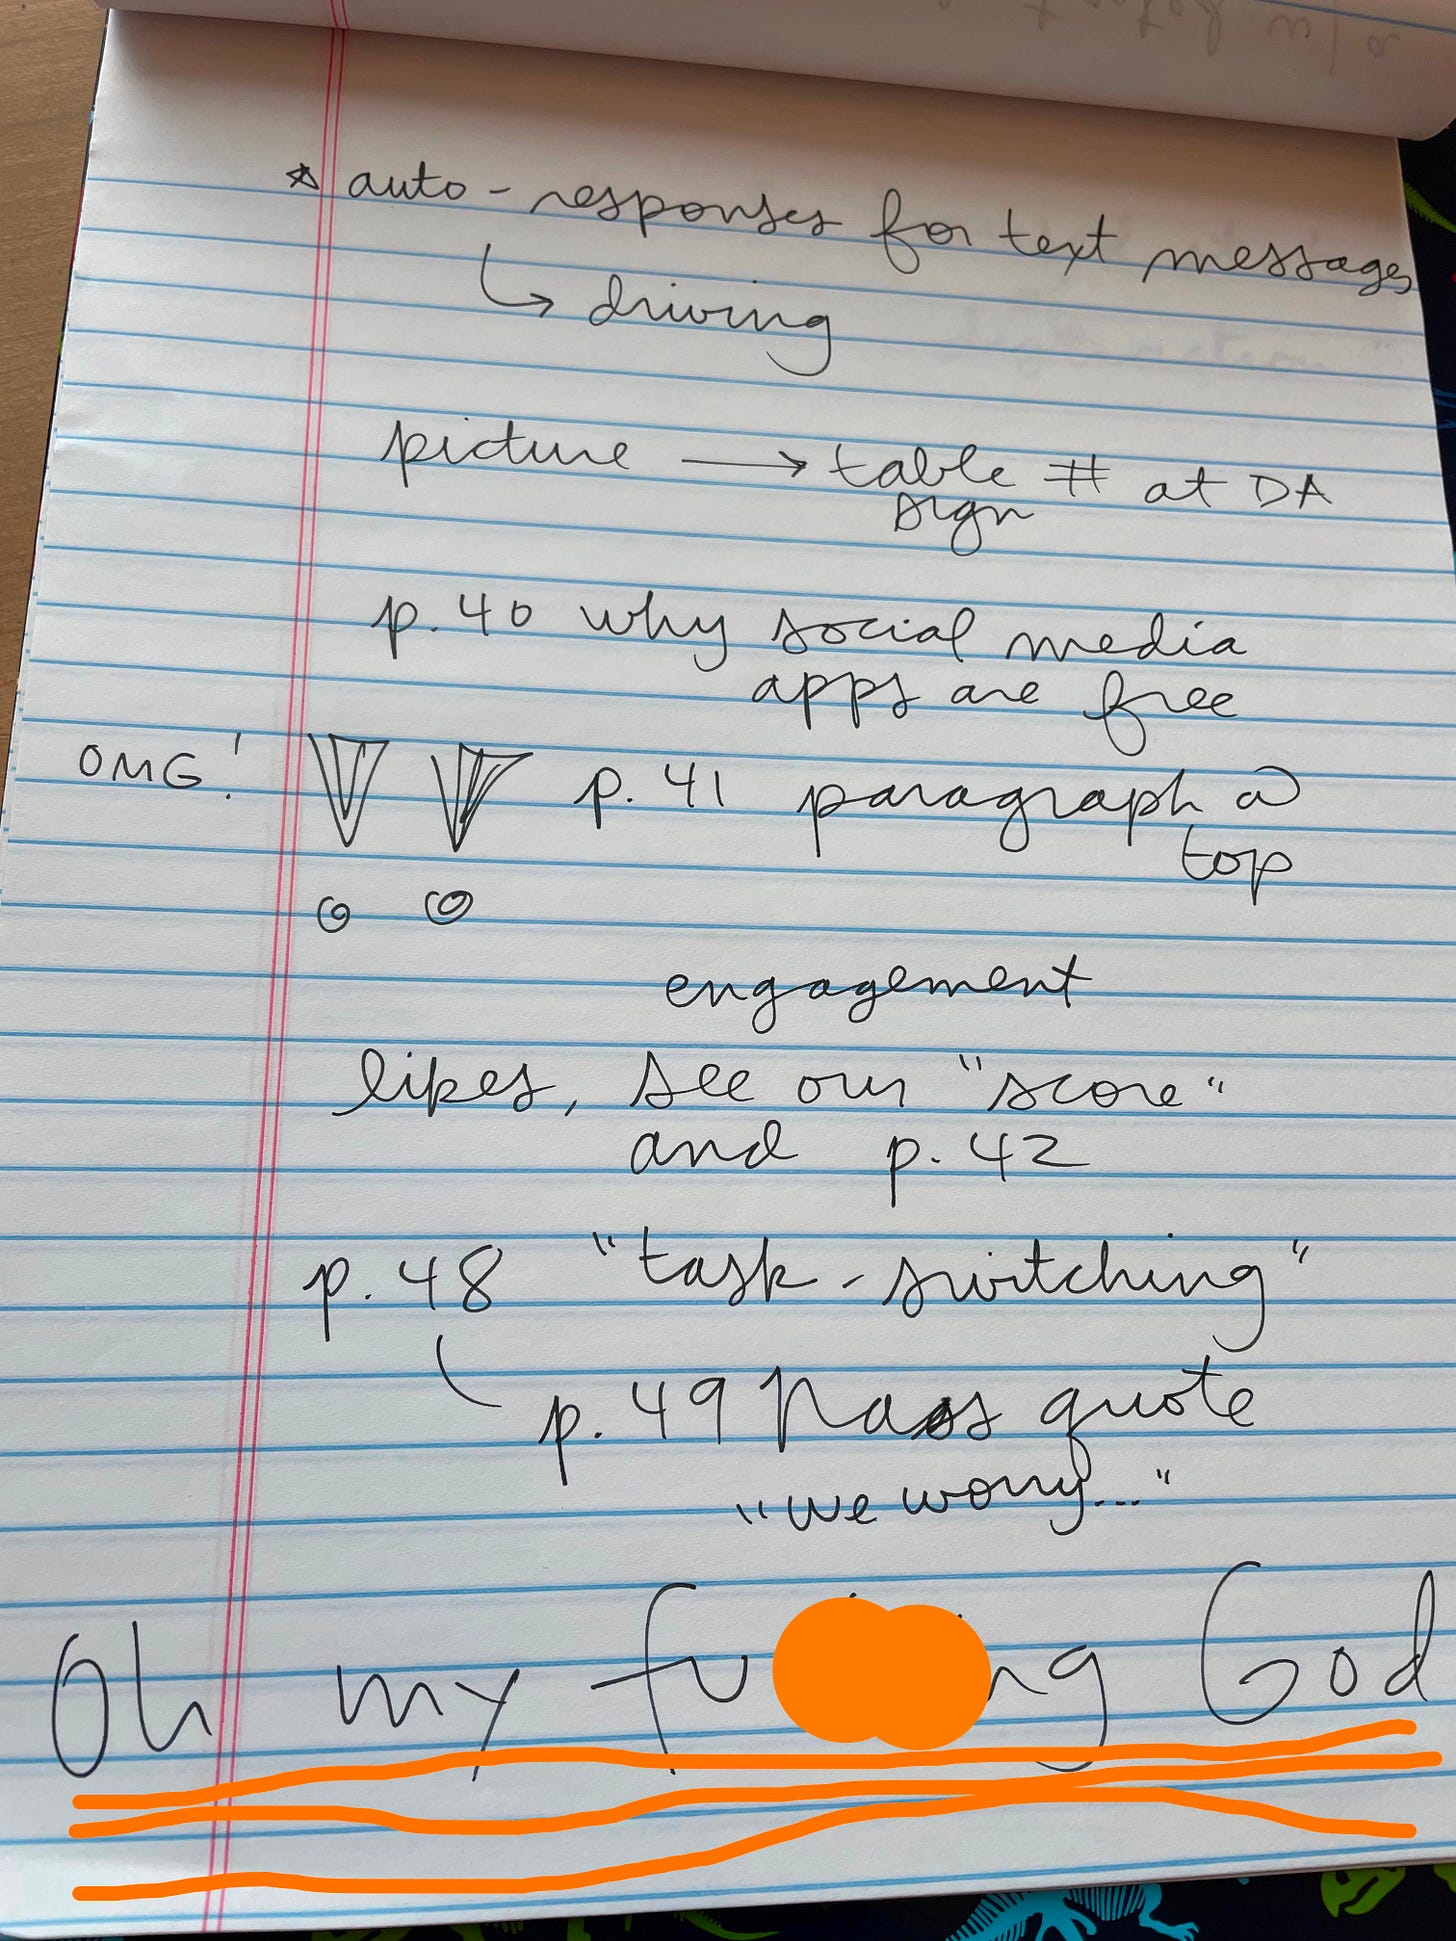 ☆ auto-responses for text messages
↳ driving
picture → table # at DA
sign
p. 40 why social media
apps are free
OMG! !! p. 41 paragraph @
top
engagement
likes, see our "score"
and p. 42
p. 48 "task-switching"
p. 49 Nass quote
"we worry..."
Oh my fu ng God